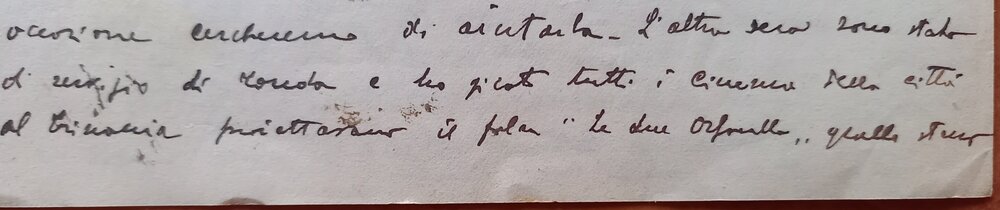 occasione cercheremo di aiutarla - L'altra sera sono stato
di servizio di ronda e ho girato tutti i Cinema della città
al Trinacria proiettavano il film " Le due Orfanelle ,, quello stesso